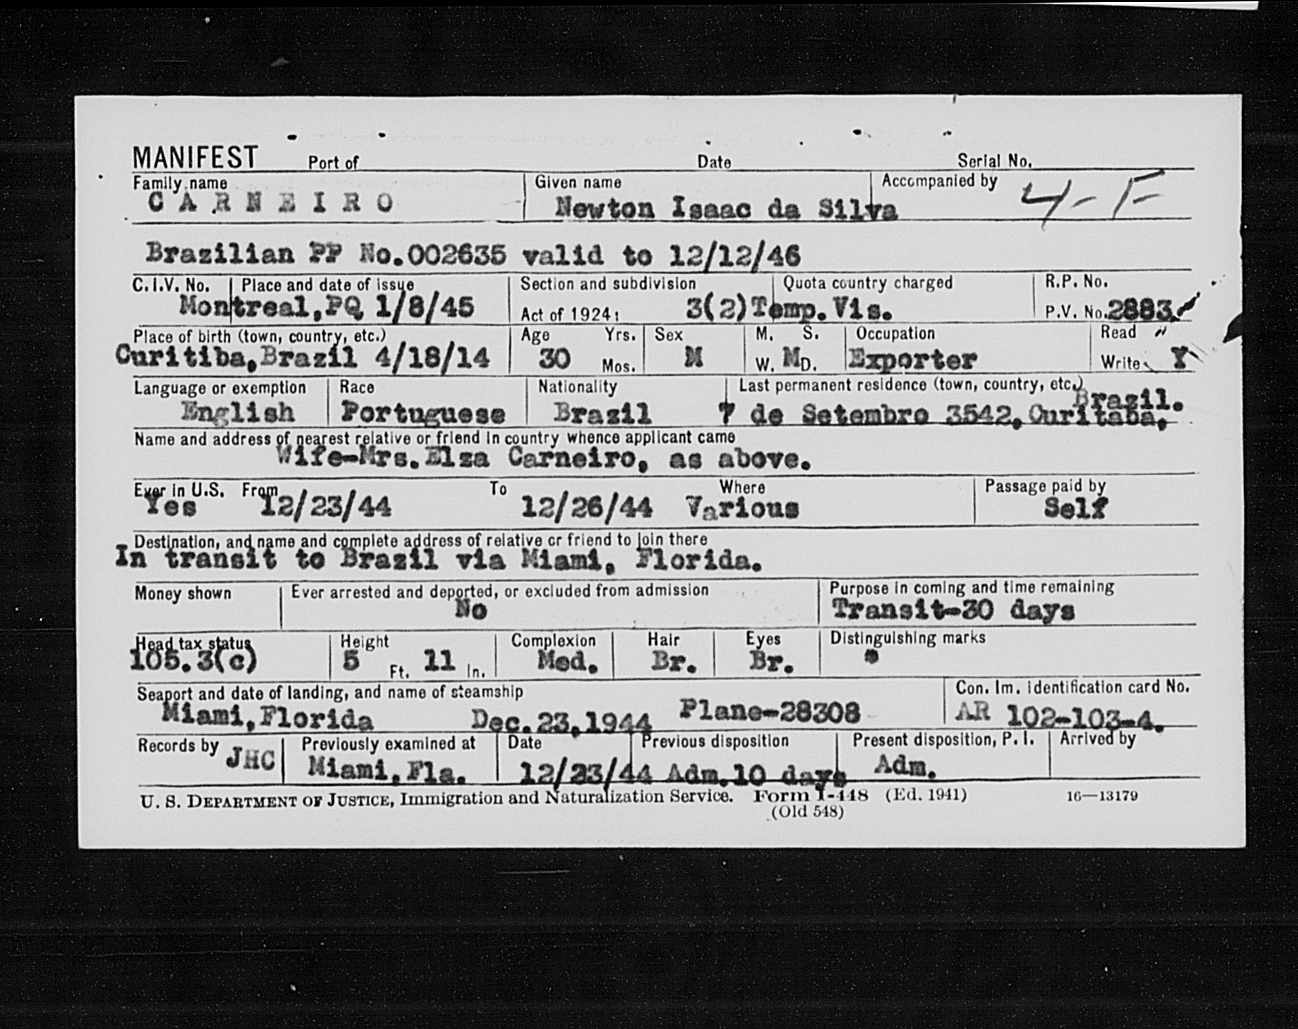 MANIFEST Port of Date Serial No.
Family name Given name Accompanied by
CARNEIRO Newton Isaac da Silva 4-F
Brazilian PP No.002635 valid to 12/12/46
C.I.V. No. Place and date of issue Section and subdivision Quota country charged R.P. No.
Montreal,PQ 1/8/45 Act of 1924: 3(2)Temp.Vis. P.V. No.2883
Place of birth (town, country, etc.) Age Yrs. Sex M. S. Occupation Read "
Curitiba,Brazil 4/18/14 30 Mos. M W. M D. Exporter Write Y
Language or exemption Race Nationality Last permanent residence (town, country, etc.) Brazil.
English Portuguese Brazil 7 de Setembro 3542, Curitaba,
Name and address of nearest relative or friend in country whence applicant came
Wife-Mrs.Elza Carneiro, as above.
Ever in U.S. From To Where Passage paid by
Yes 12/23/44 12/26/44 Various Self
Destination, and name and complete address of relative or friend to join there
In transit to Brazil via Miami, Florida.
Money shown Ever arrested and deported, or excluded from admission Purpose in coming and time remaining
No Transit-30 days
Head tax status Height Complexion Hair Eyes Distinguishing marks
105.3(c) 5 Ft. 11 In. Med. Br. Br.
Seaport and date of landing, and name of steamship Con. Im. identification card No.
Miami,Florida Dec.23,1944 Plane-28308 AR 102-103-4.
Records by JHC Previously examined at Date Previous disposition Present disposition, P. I. Arrived by
Miami,Fla. 12/23/44 Adm.10 days Adm.
U. S. DEPARTMENT OF JUSTICE, Immigration and Naturalization Service. Form I-448 (Ed. 1941) 16—13179
(Old 548)